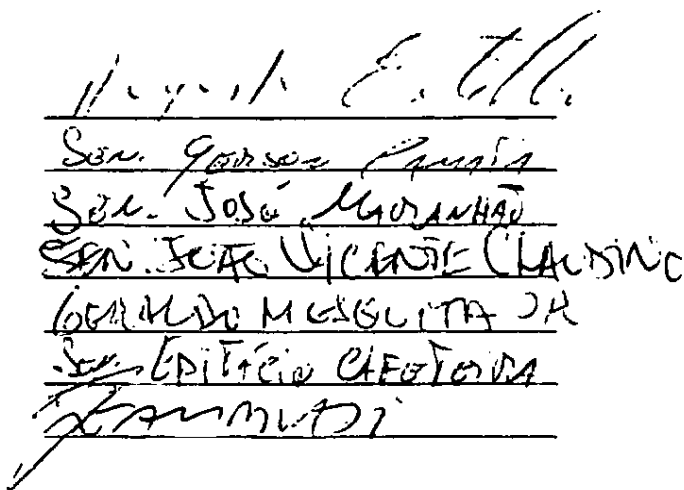 Augusto
Sen. Gerson Camata
Sen. José Maranhão
SEN. JOÃO VICENTE CLAUDINO
GERALDO MESQUITA JR
Sen. EPITÁCIO CAFETEIRA